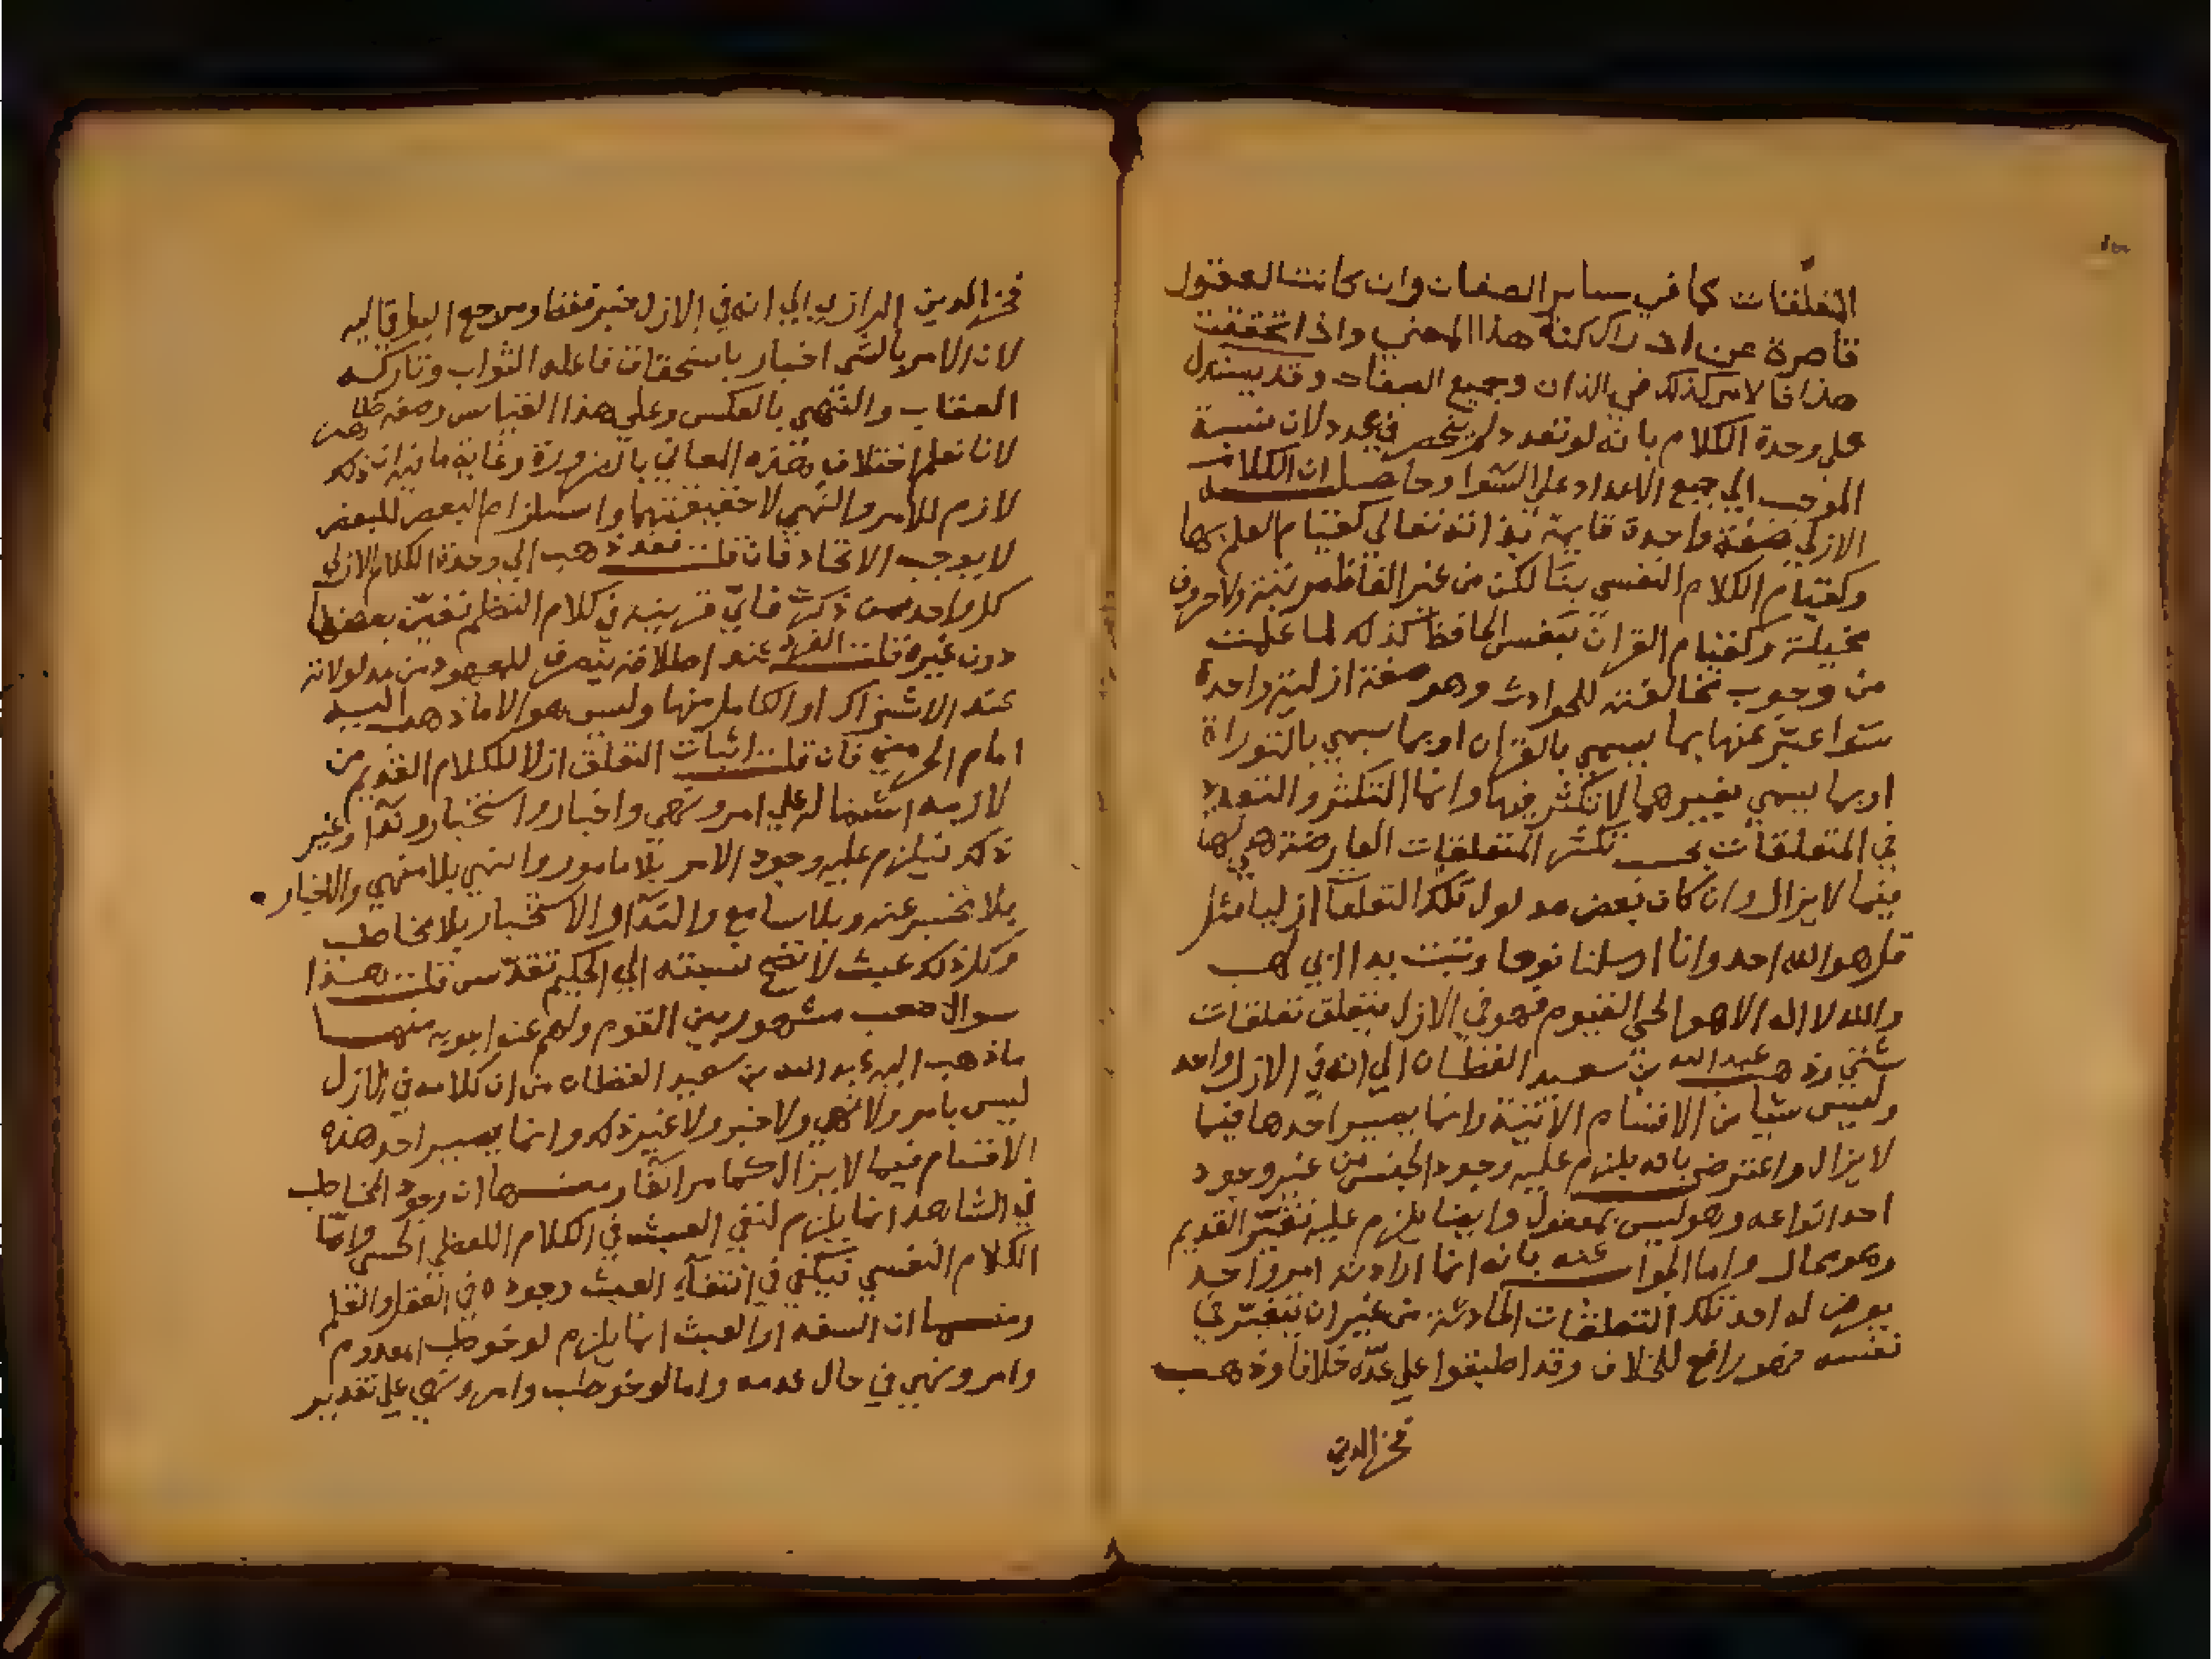 التعلقات كما في ساير الصفات وان كانت العقول
قاصرة عن ادراك كنه هذا المعني واذا تحققت
هذا فالامر كذلك في الذات وجميع الصفات وقد يستدل
علي وحدة الكلام بانه لو تعدد لم ينحصر في عدد لان نسبة
الموجب الي جميع الاعداد علي السوا وحاصل ان الكلام
الازلي صفة واحدة قايمة بذاته تعالي كقيام العلم بها
وكقيام الكلام النفسي بنا لكن من غير الفاظ مرتبة ولا حروف
مخيلة وكقيام القران بنفس الحافظ كذلك لما علمت
من وجوب مخالفته للحوادث وهو صفة ازلية واحدة
سوا عبّر عنها بما يسمي بالقران او بما يسمي بالتوراة
او بما يسمي بغيرهما لا تكثر فيها وانما التكثر والتعدد
في المتعلقات بحسب تكثر المتعلقات العارضة هي لها
فيما لا يزال وان كان بعض مدلول تلك التعلقا ازليا مثل
قل هو الله احد وانا ارسلنا نوحا وتبت يدا ابي لهب
والله لا اله الا هو الحي القيوم فهو في الازل متعلق تعلقات
شتي وذهب عبد الله بن سعيد القطان الي انه في الازل واحد
وليس شيا من الاقسام الاتية وانما يصير احدها فيما
لا يزال واعترض بانه يلزم عليه وجود الجنس من غير وجود
احد انواعه وهو ليس بمعقول وايضا يلزم عليه تغيّر القديم
وهو محال واما الجواب عنه بانه انما اراد به امر واحد
يعرض له احد تلك التعلقات الحادثة من غير ان يتغير في
نفسه فهو رافع للخلاف وقد اطبقوا علي عدّه خلافا وذهب
فخر الدين
فخر الدين الرازي الي انه في الازل خبر فقط ومرجع البواقي اليه
لان الامر بالشي اخبار باستحقاق فاعله الثواب وتاركه
العقاب والنهي بالعكس وعلي هذا القياس وضعفه ظاهر
لانا نعلم اختلاف هذه المعاني بالضرورة وغاية ما فيه ان ذلك
لازم للامر والنهي لا حقيقتهما واستلزام البعض للبعض
لا يوجب الاتحاد فان قلت فقد ذهب الي وحدة الكلام الازلي
كل واحد ممن ذكرت فايّ قرينة في كلام النظم تعيّن بعضها
دون غيره قلت الفرد عند اطلاقه ينصرف للمعهود من مدلولاته
عند الاشتراك او الكامل منها وليس هو الا ما ذهب اليه
امام الحرمين فان قلت اثبات التعلق ازلا للكلام القديم من
لازمه اشتماله علي امر ونهي واخبار واستخبار وندآ وغير
ذلك فيلزم عليه وجود الامر بلا مامور والنهي بلا منهي والاخبار
بلا مخبر عنه وبلا سامع والندآ والاستخبار بلا مخاطب
وكل ذلك عبث لا تصح نسبته الي الحكيم تقدّس قلت هذا
سوال صعب مشهور بين القوم ولهم عنه اجوبه منها
ما ذهب اليه عبد الله بن سعيد القطان من ان كلامه في الازل
ليس بامر ولا نهي ولا خبر ولا غير ذلك وانما يصير احد هذه
الاقسام فيما لا يزال كما مر انفا ومنها ان وجود المخاطب
في الشاهد انما يلزم لنفي العبث في الكلام اللفظي الحسي وامّا
الكلام النفسي فيكفي في انتفآء العبث وجوده في العقل والعلم
ومنها ان السفه او العبث انما يلزم لو خوطب المعدوم
وامر ونهي في حال عدمه واما لو خوطب وامر ونهي علي تقدير